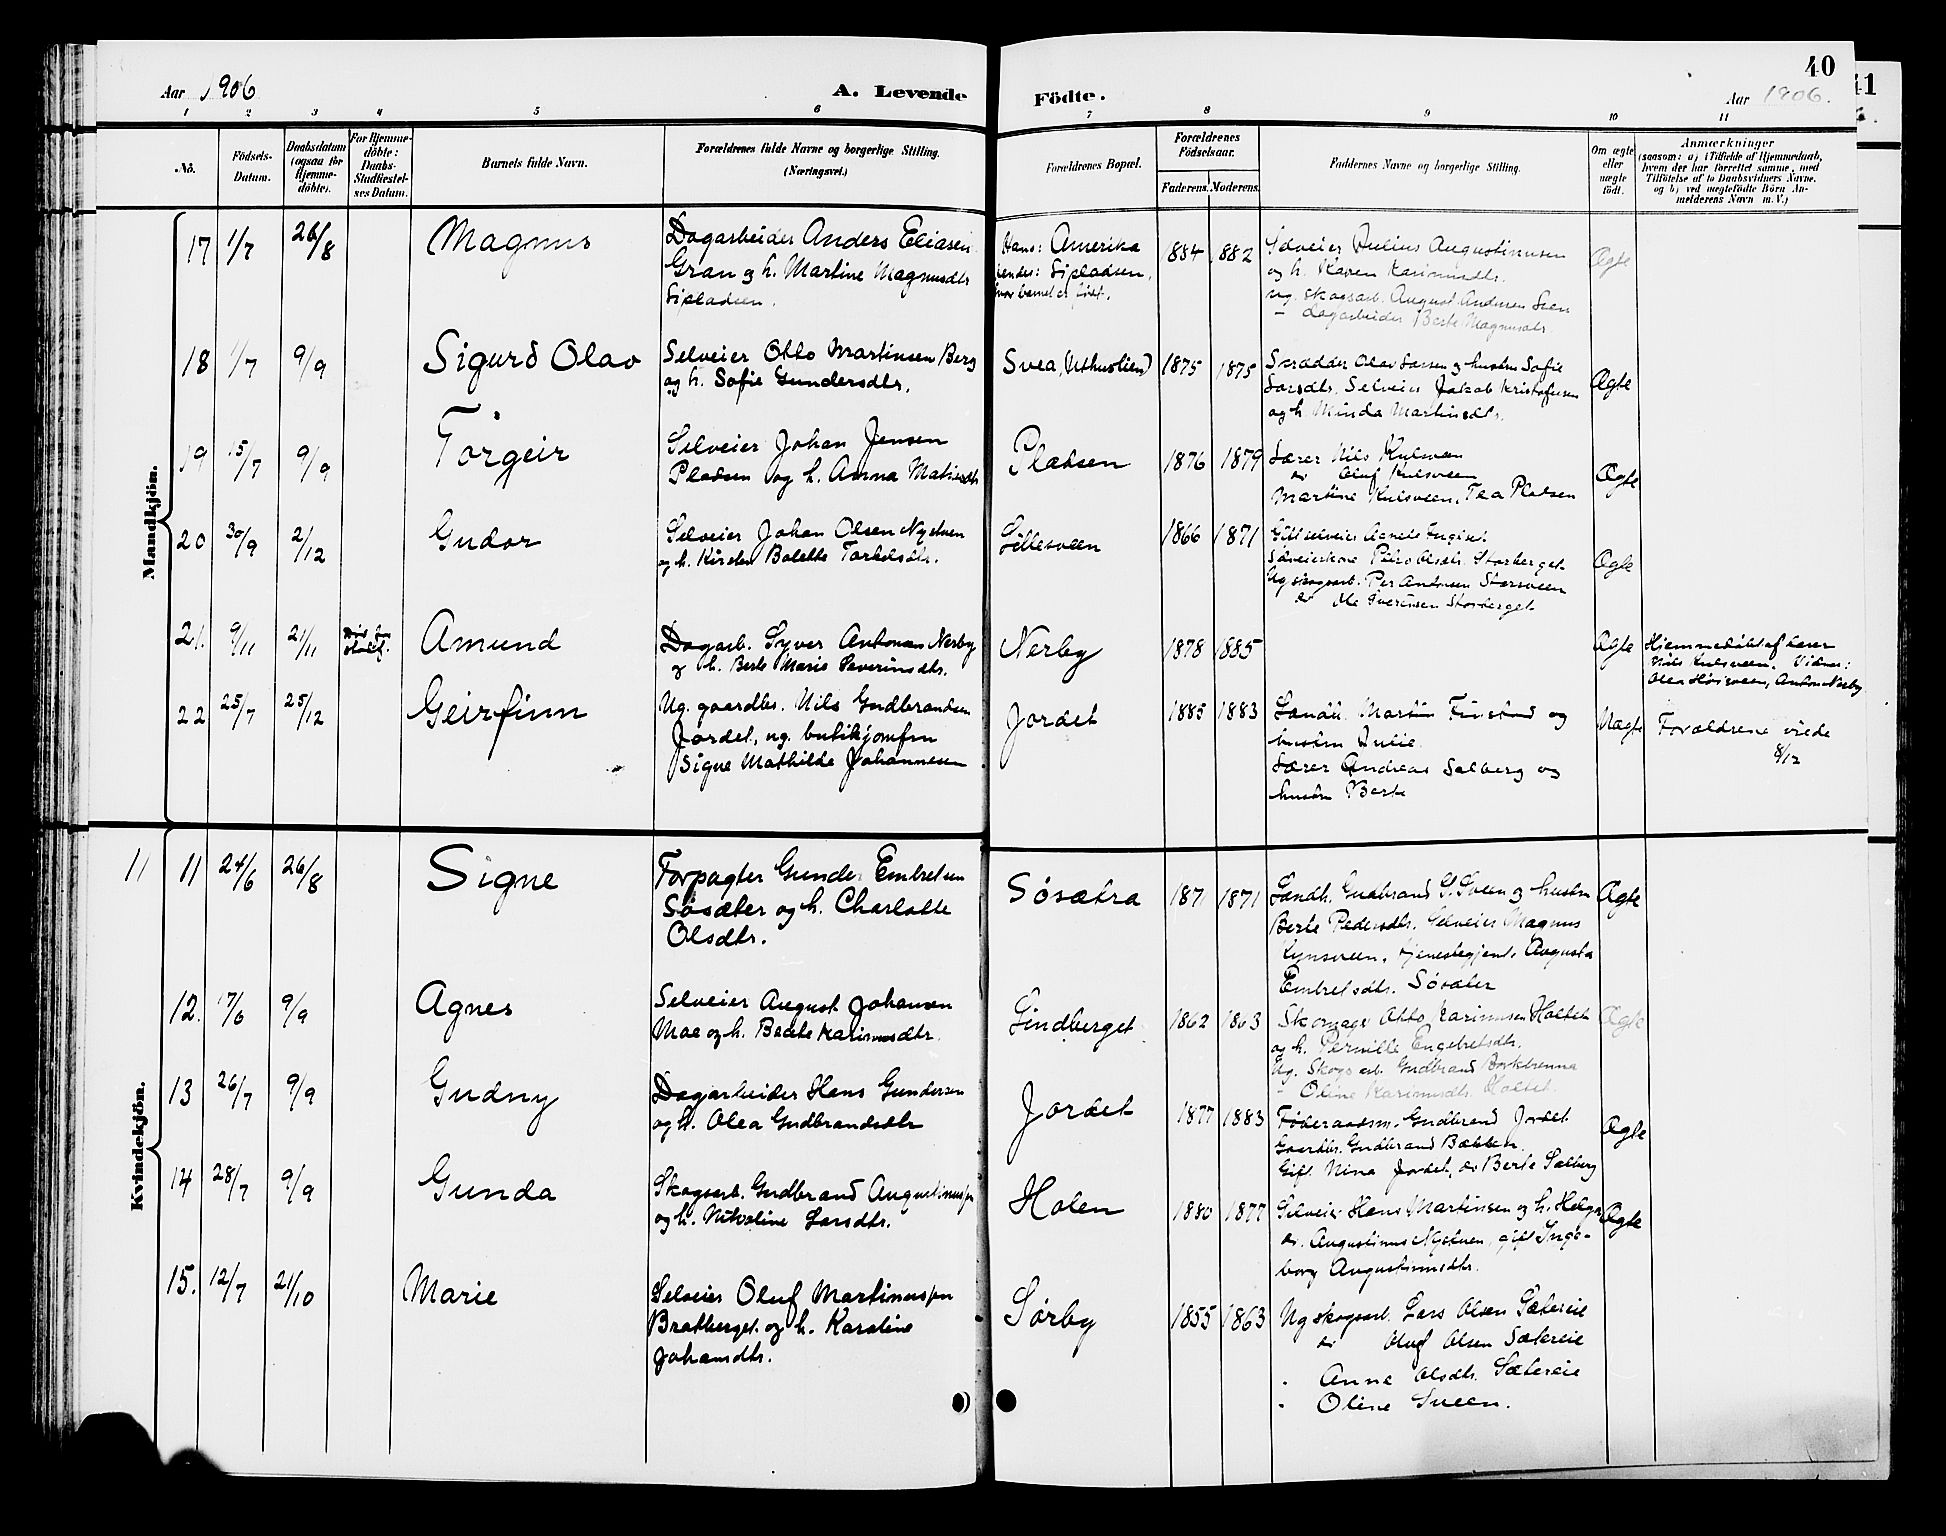 Aar 1906
A. Levende
Födte.
40
Aar 1906.
41
1 2 3 4 5 6 7 8 9 10 11
No.
Födsels-Datum.
Daabsdatum (ogsaa for Hjemme-döbte).
For Hjemme-döbte: Daabs-Stadfæstel-ses Datum.
Barnets fulde Navn.
Forældrenes fulde Navne og borgerlige Stilling. (Næringsvei.)
Forældrenes Bopæl.
Forældrenes Födselsaar.
Faderens. Moderens.
Faddernes Navne og borgerlige Stilling.
Om ægte eller uægte födt.
Anmærkninger
(saasom: a) i Tilfælde af Hjemmedaab, hvem der har forrettet samme, med Tilföielse af to Daabsvidners Navne, og b) ved uægtefödte Börn Anmelderens Navn m. V.)
Mandkjön.
17 1/7 26/8 Magnus
Dagarbeider Anders Eliasen
Gran og h. Martine Magnusdtr
Sipladsen.
Hans: Amerika
hendes: Sipladsen,
hvor barnet er født.
1884 1882
Selveier Julius Augustinusen
og h. Karen Karinusdtr.
ug. skogsarb. August Andersen
– dagarbeider Berte Magnusdtr
Ægte
18 1/7 9/9 Sigurd Olav
Selveier Otto Martinsen Berg
og h. Sofie Gundersdtr.
Svea, (Uthuslien)
1875 1875
Skrædder Olav Larsen og hustru Sofie
Larsdtr. Selveier Jakob Kristofersen
og h. Minda Martinsdtr.
Ægte
19 15/7 9/9 Torgeir
Selveier Johan Jensen
Pladsen og h. Anna
Pladsen
1876 1879
Lærer Nils Kulsveen
do Oluf Kulsveen
Martine Kulsveen, Tea Pladsen
Ægte
20 30/9 2/12 Gudor
Selveier Johan Olsen Nystuen
og h. Kirsten Bolette Torkelsdtr.
Lillesveen
1866 1871
Gift selveier
Selveierkone Petra Olsdtr. Storberget
Ug skogsarb. Per Antonsen
do Ole Iversen Storberget
Ægte
21. 9/11 21/11 Amund
Dagarb. Syver Antonsen Nerby
og h. Berte Marie Severinsdtr.
Nerby
1878 1885
Ægte
Hjemmedøbt af lærer
Nils Kulsveen. Vidner:
Olea, Anton Nerby
22 25/7 25/12 Geirfinn
Ug. gaardbr. Nils Gudbrandsen
Jordet, ug. butikjomfru
Signe Mathilde Johannesen
Jordet
1885 1883
Landh. Martin og
hustru Julie.
Lærer Andreas Salberg og
hustru Berte
Uægte
Forældrene viede
8/12
Kvindekjön.
11 11 24/6 26/8 Signe
Forpagter Gunder Embretsen
Søsæter og h. Charlotte
Olsdtr.
Søsætra
187 1871
Landh. Gudbrand G. Sveen og hustru
Berte Pedersdtr. Selveier Magnus
tjenestegjent. Augusta
Embretsdtr. Søsæter
Ægte
12. 17/6 9/9 Agnes
Selveier August Johansen
Moe og h. Beate Karinusdtr.
Lindberget
1862 1863
Skomager Otto Karinusen Holtet
og h. Pernille Engebretsdtr.
Ug. Skogsarb. Gudbrand Borkbrenna
– Oline Karinusdtr. Holtet.
Ægte
13 26/7 9/9 Gudny
Dagarbeider Hans Gundersen
og h. Olea Gudbrandsdtr
Jordet
1877 1883
Føderaadsm. Gudbrand Jordet
Gaardbr. Gudbrand Bækken.
Gift. Nina Jordet, do Berte Salberg
Ægte
14 28/7 9/9 Gunda
Skogsarb. Gudbrand Augustinusen
og h. Nikoline Larsdtr.
Holen
1880 1877
Selveier Hans Martinsen og h. Helga
do. Augustinus Nystuen, gift Inge-
borg Augustinusdtr.
Ægte
15. 12/7 21/10 Marie
Selveier Oluf Martinusen
Bratberget og h. Karoline
Johansdtr.
Sørby
1855 1863
Ug skogsarb. Lars Olsen Sætereie
do Oluf Olsen Sætereie
– Anne Olsdtr. Sætereie
– Oline Sveen.